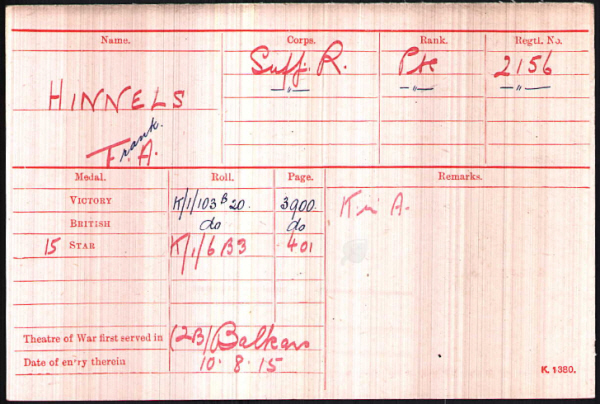 Name. Corps. Rank. Regtl. No.
HINNELS Suff. R. Pte 2156
—"— —"— —"—
Frank.
F. A.
Medal. Roll. Page. Remarks.
VICTORY K/1/103 B 20. 3900. K in A.
BRITISH do do
15 STAR K/1/6 B3 401
Theatre of War first served in (2B) Balkans
Date of entry therein 10.8.15
K. 1380.